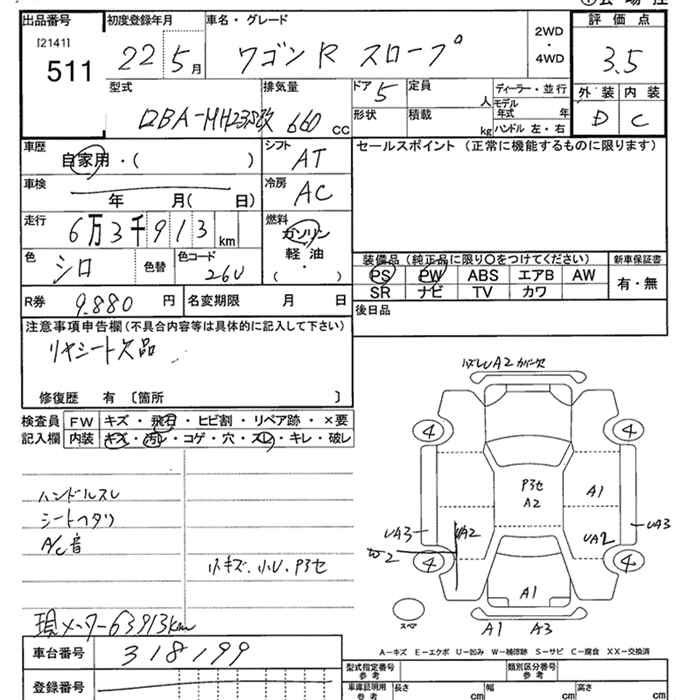 出品番号 初度登録年月 車名・グレード 2WD・4WD 評価点
[2141]
511 22年5月 ワゴンR スロープ 3.5
型式 排気量 ドア 定員 人 ディーラー・並行 外装 内装
DBA-MH23S改 660 cc 5 形状 積載 kg モデル年式 年 ハンドル 左・右 D C
車歴 自家用・( ) シフト AT セールスポイント (正常に機能するものに限ります)
車検 年 月( 日) 冷房 AC
走行 6万3千913km 燃料 ガソリン 軽油 ・ ( )
装備品 (純正品に限り○をつけてください) 新車保証書
色 シロ 色替 色コード 26U PS PW ABS エアB AW 有・無
SR ナビ TV カワ
R券 9.880 円 名変期限 月 日 後日品
注意事項申告欄 (不具合内容等は具体的に記入して下さい)
リヤシート欠品
修復歴 有 〔箇所 〕
検査員 FW キズ・飛石・ヒビ割・リペア跡・×要
記入欄 内装 キズ・汚レ・コゲ・穴・スレ・キレ・破レ
ハンドルスレ
シートヘタリ
A/C音
小キズ、小U、P3セ
現メーター63913km
車台番号 318199
登録番号
UA2 カバー欠
4 4
P3セ
A2
A1
UA3 UA2 UA2 UA3
W2
4 4
A1
スペア
A1 A3
A-キズ E-エクボ U-凹み W-補修跡 S-サビ C-腐食 XX-交換済
型式指定番号 参考 類別区分番号 参考
車庫証明用 参考 長さ cm 幅 cm 高さ cm